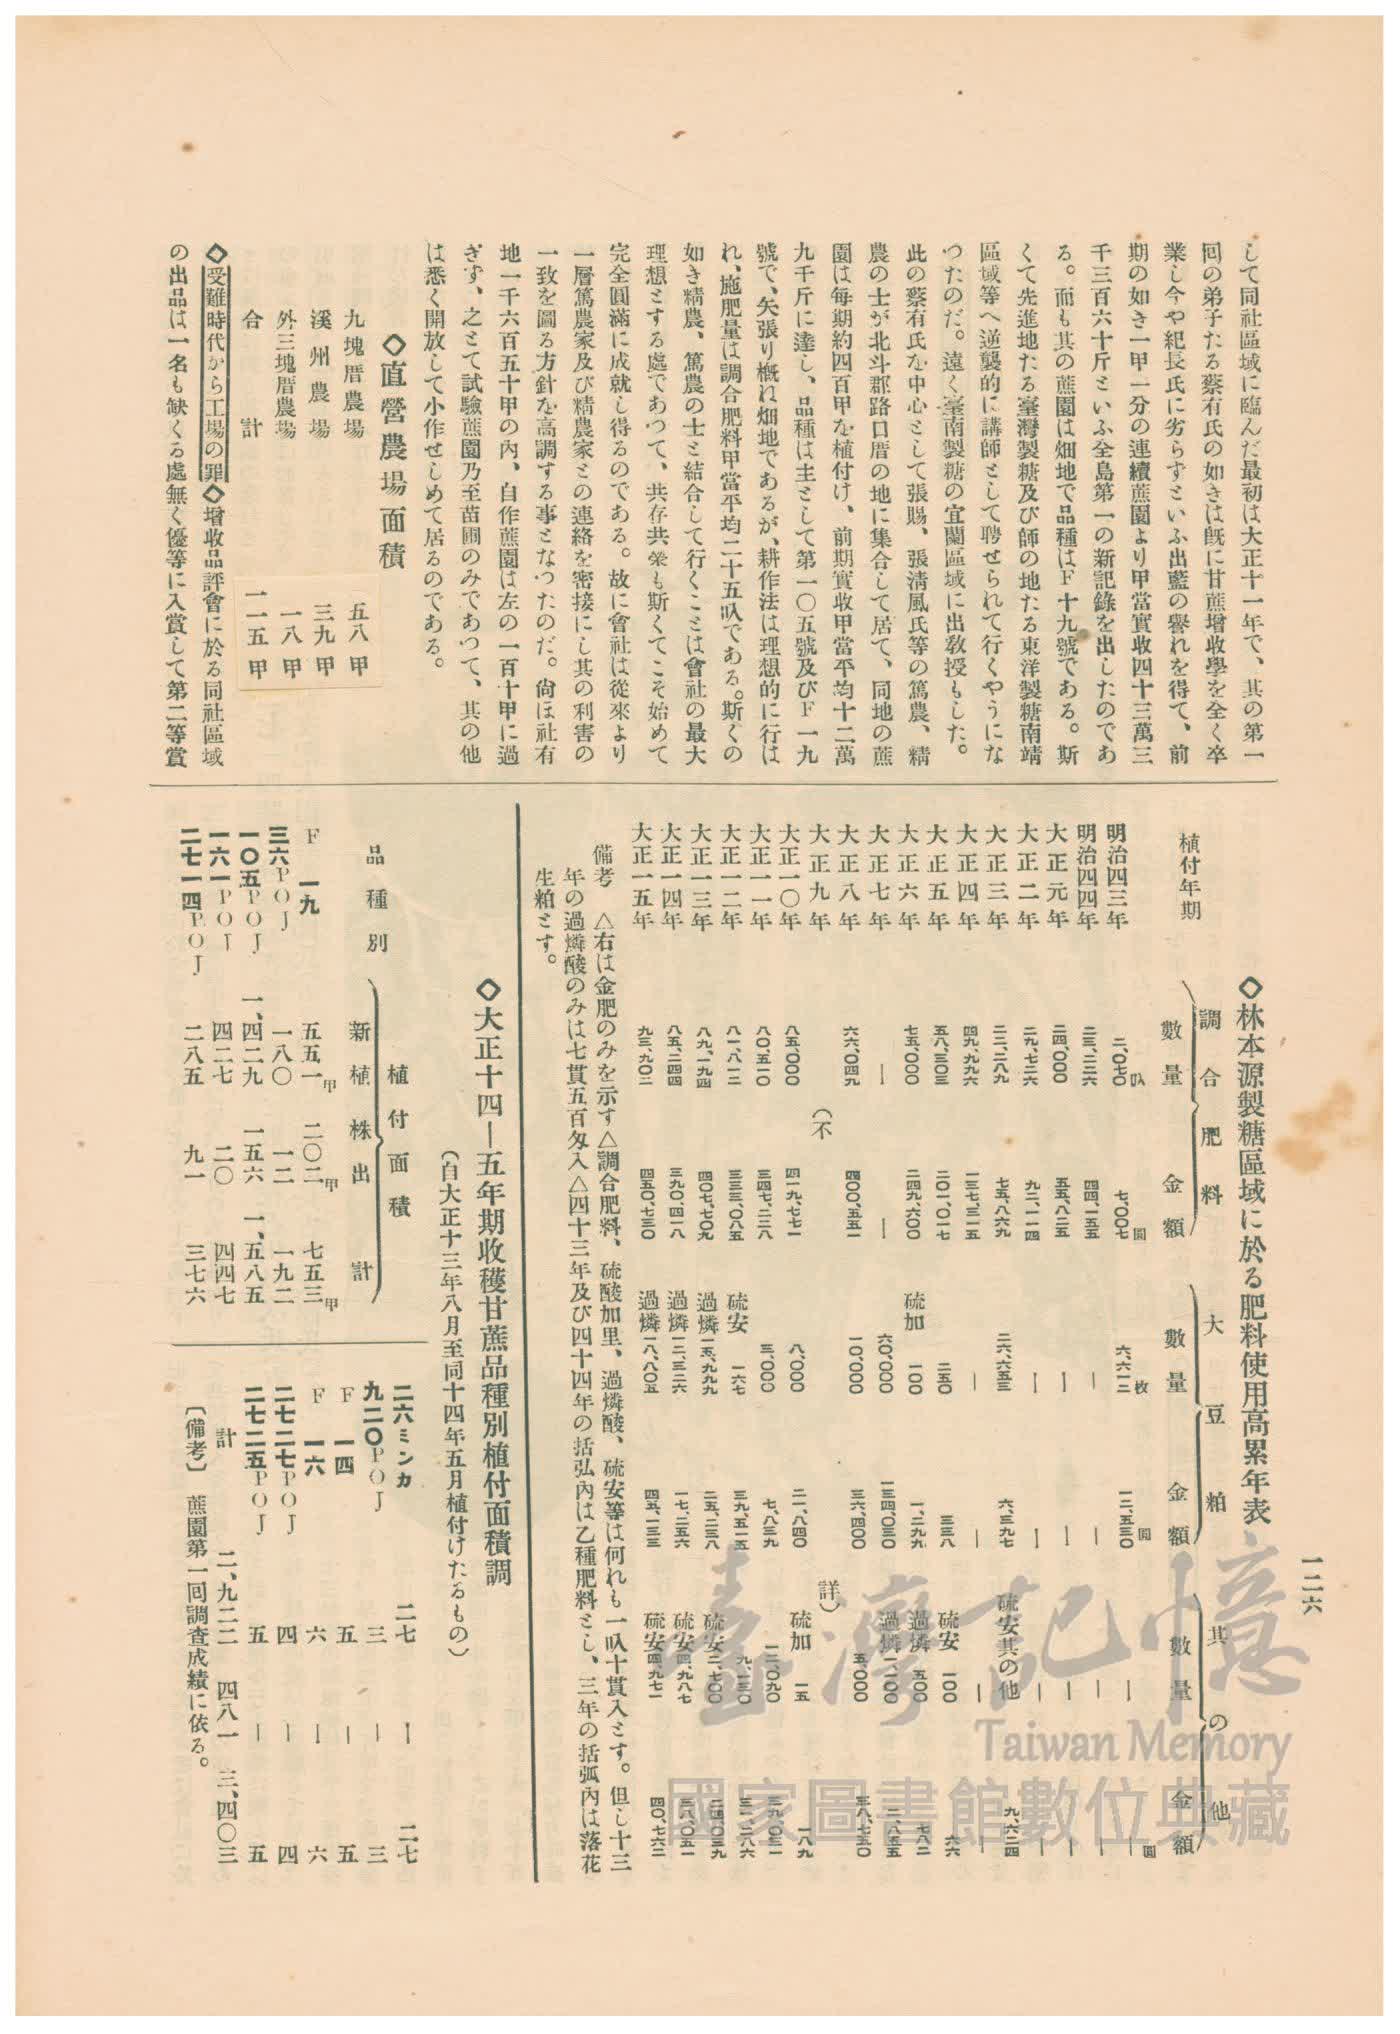 一二六
して同社區域に臨んだ最初は大正十一年で、其の第一
回の弟子たる蔡有氏の如きは既に甘蔗增收學を全く卒
業し今や紀長氏に劣らずといふ出藍の譽れを得て、前
期の如き一甲一分の連續蔗園より甲當實收四十三萬三
千三百六十斤といふ全島第一の新記錄を出したのであ
る。而も其の蔗園は畑地で品種はF十九號である。斯
くて先進地たる臺灣製糖及び師の地たる東洋製糖南靖
區域等へ逆襲的に講師として聘せられて行くやうにな
つたのだ。遠く臺南製糖の宜蘭區域に出敎授もした。
此の蔡有氏を中心として張賜、張淸風氏等の篤農、精
農の士が北斗郡路口厝の地に集合して居て、同地の蔗
園は每期約四百甲を植付け、前期實收甲當平均十二萬
九千斤に達し、品種は主として第一〇五號及びF一九
號で、矢張り槪ね畑地であるが、耕作法は理想的に行は
れ、施肥量は調合肥料甲當平均二十五叺である。斯くの
如き精農、篤農の士と結合して行くことは會社の最大
理想とする處であつて、共存共榮も斯くてこそ始めて
完全圓滿に成就し得るのである。故に會社は從來より
一層篤農家及び精農家との連絡を密接にし其の利害の
一致を圖る方針を高調する事となつたのだ。尙ほ社有
地一千六百五十甲の內、自作蔗園は左の一百十甲に過
ぎず、之とて試驗蔗園乃至苗圃のみであつて、其の他
は悉く開放して小作せしめて居るのである。
◇直營農場面積
九塊厝農場　五八甲
溪州農場　三九甲
外三塊厝農場　一八甲
合計　一一五甲
◇受難時代から工場の罪◇增收品評會に於る同社區域
の出品は一名も缺くる處無く優等に入賞して第二等賞
◇林本源製糖區域に於る肥料使用高累年表
植付年期　調合肥料　大豆粕　其の他
數量　金額　數量　金額　數量　金額
明治四三年　二、〇七〇叺　七、〇〇七圓　六、六一二枚　一二、五三〇圓　―　―圓
明治四四年　二三、二二六　四四、一五五　―　―　―　―
大正元年　二四、〇〇〇　五五、八二五　―　―　―　―
大正二年　二九、七二六　九二、一一四　―　―　―　―
大正三年　二三、二八九　七五、八六九　二六、六五三　六、三九七　硫安其の他　九、六二四
大正四年　四九、九九六　一三七、三一五　―　―　―　―
大正五年　五八、三〇三　二〇一、〇一七　二五〇　三三八　硫安　一〇〇　六六
大正六年　七五、〇〇〇　二四九、六〇〇　硫加　一〇〇　一、二九九　過燐　五〇〇　七八二
大正七年　―　―　六〇、〇〇〇　一三四、〇三〇　過燐　一、一〇〇　二、八五五
大正八年　六六、〇四九　四〇〇、五五一　一〇、〇〇〇　三六、四〇〇　五、〇〇〇　三八、七五〇
大正九年　（不　詳）
大正一〇年　八五、〇〇〇　四一九、七七一　八、〇〇〇　二一、八四〇　硫加　一五　一八九
大正一一年　八〇、五一〇　三四七、二二八　三、〇〇〇　七、八三九　一二、〇九〇　三九、〇三一
大正一二年　八一、八一二　三三三、〇八五　硫安　一六七　三九、五一五　九、一三〇　三一、二八六
大正一三年　八九、一九四　四〇七、七〇九　過燐　一五、九九九　二五、二三八　硫安　二、七〇〇　二四、〇三九
大正一四年　八五、二四四　三九〇、四一八　過燐　一二、三二六　一七、二五六　硫安　四、九八七　三八、〇五一
大正一五年　九三、九〇二　四五〇、七三〇　過燐　一八、八〇五　四五、一三三　硫安　四、九七一　四〇、七六二
備考　△右は金肥のみを示す△調合肥料、硫酸加里、過燐酸、硫安等は何れも一叺十貫入とす。但し十三
年の過燐酸のみは七貫五百匁入△四十三年及び四十四年の括弘內は乙種肥料とし、三年の括弧內は落花
生粕とす。
◇大正十四―五年期收穫甘蔗品種別植付面積調
（自大正十三年八月至同十四年五月植付けたるもの）
品種別　植付面積
新植　株出　計
F一九　五五一甲　二〇二甲　七五三甲
三六POJ　一八〇　一二　一九二
一〇五POJ　一、四二九　一五六　一、五八五
一六一POJ　四二七　二〇　四四七
二七一四POJ　二八五　九一　三七六
二六ミンカ　二七　―　二七
九二〇POJ　三　―　三
F一四　五　―　五
F一六　六　―　六
二七二七POJ　四　―　四
二七二五POJ　五　―　五
計　二、九二二　四八一　三、四〇三
〔備考〕　蔗園第一回調査成績に依る。
臺灣記憶
Taiwan Memory
國家圖書館數位典藏